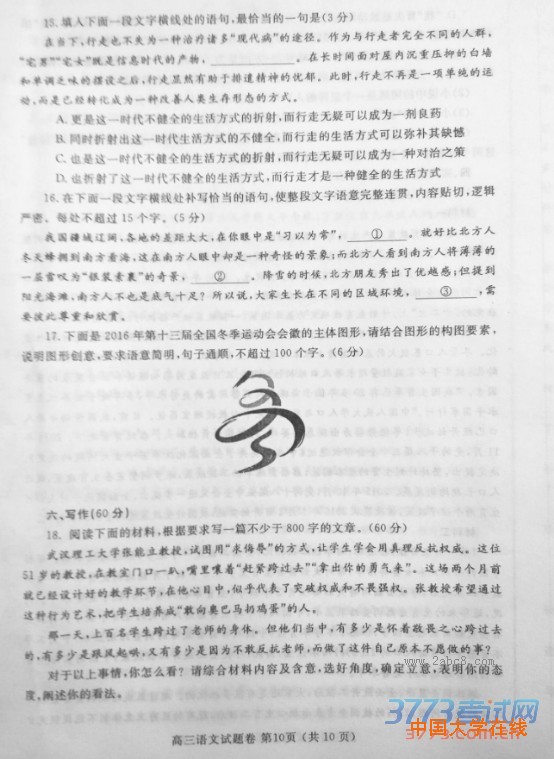 15. 填入下面一段文字横线处的语句,最恰当的一句是(3 分)
在当下,行走也不失为一种治疗诸多“现代病”的途径。作为与行走者完全不同的人群,
“宅男”“宅女”既是信息时代的产物,____________。在长时间面对屋内沉重压抑的白墙
和单调乏味的摆设之后,行走显然有助于排遣精神的忧郁。此时,行走不再是一项单纯的运
动,而是已经转化成为一种改善人类生存形态的方式。
A. 更是这一时代不健全的生活方式的折射,而行走无疑可以成为一剂良药
B. 同时折射出这一时代生活方式的不健全,而行走的生活方式可以弥补其缺憾
C. 也是这一时代不健全的生活方式的折射,而行走无疑可以成为一种对治之策
D. 也折射了这一时代不健全的生活方式,而行走才是一种健全的生活方式
16. 在下面一段文字横线处补写恰当的语句,使整段文字语意完整连贯,内容贴切,逻辑
严密。每处不超过 15 个字。(5 分)
我国疆域辽阔,各地的差距太大,在你眼中是“习以为常”,____①____。就好比北方人
冬天蜂拥到南方看海,这在南方人眼中却是一种奇怪的景象;而北方人看到南方人将薄薄的
一层雪叹为“银装素裹”的奇景,____②____。降雪的时候,北方朋友秀出了优越感;但提到
阳光海滩,南方人不也是底气十足?所以说,大家生长在不同的区域环境,____③____,需
要彼此尊重和欣赏。
17. 下面是 2016 年第十三届全国冬季运动会会徽的主体图形,请结合图形的构图要素,
说明图形创意,要求语意简明,句子通顺,不超过 100 个字。(6 分)
六、写作(60 分)
18. 阅读下面的材料,根据要求写一篇不少于 800 字的文章。(60 分)
武汉理工大学张能立教授,试图用“求侮辱”的方式,让学生学会用真理反抗权威。这位
51 岁的教授,在教室门口一趴,嘴里嚷着“赶紧跨过去”“拿出你的勇气来”。这场两个月前
就已经设计好的教学环节,在他心目中,似乎代表了突破权威和不畏强权。张教授希望通过
这种行为艺术,把学生培养成“敢向奥巴马扔鸡蛋”的人。
那一天,上百名学生跨过了老师的身体。但他们当中,有多少是怀着敬畏之心跨过去
的,有多少是跟风起哄,又有多少是因为不敢反抗老师,而做了这件自己原本不愿做的事?
对于以上事情,你怎么看?请综合材料内容及含意,选好角度,确定立意,表明你的态
度,阐述你的看法。
www.2abc8.com
高三语文试题卷 第10页(共 10 页)
3773考试网
中国大学在线
3773.com.cn